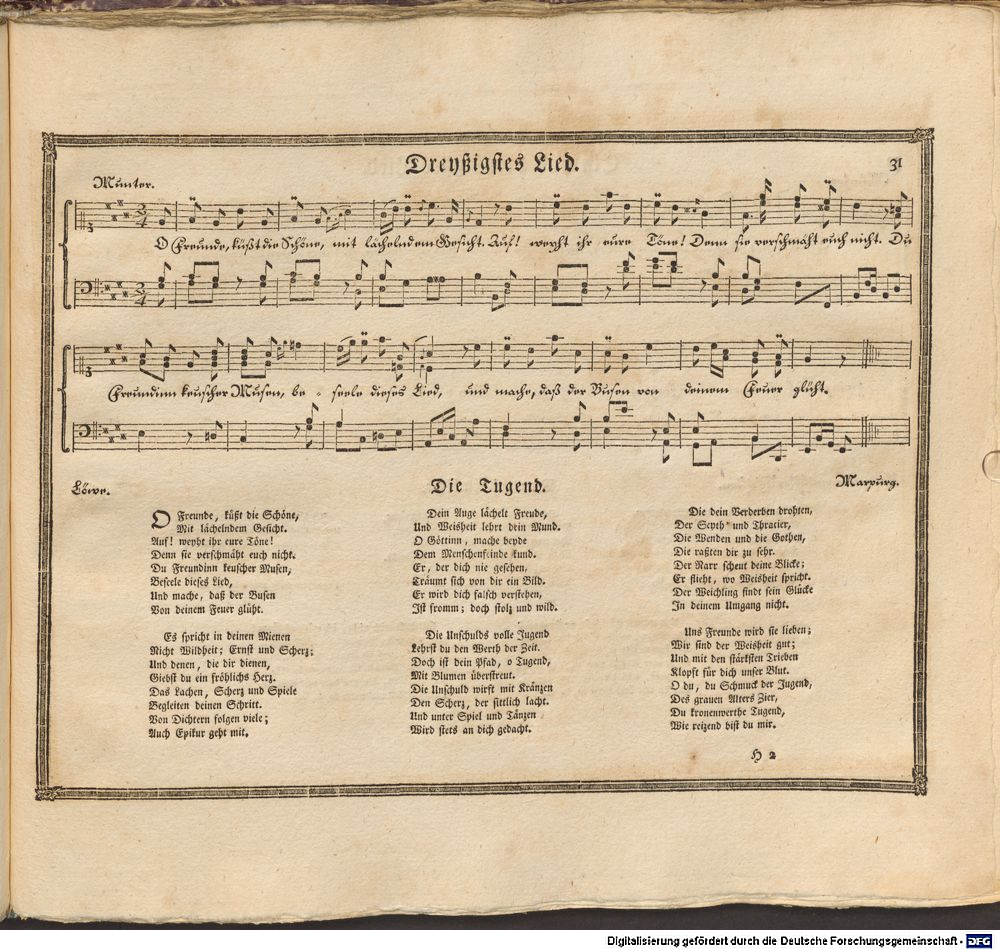 Dreyßigstes Lied.
31
Munter.
O Freunde, küßt die Schöne, mit lächelndem Gesicht. Auf! weyht ihr eure Töne! Denn sie verschmäht euch nicht. Du
Freundinn keuscher Musen, be - seele dieses Lied, und mache, daß der Busen von deinem Feuer glüht.
Löwe.
Die Tugend.
Marpurg.
O Freunde, küßt die Schöne,
Mit lächelndem Gesicht.
Auf! weyht ihr eure Töne!
Denn sie verschmäht euch nicht.
Du Freundinn keuscher Musen,
Beseele dieses Lied,
Und mache, daß der Busen
Von deinem Feuer glüht.
Es spricht in deinen Mienen
Nicht Wildheit; Ernst und Scherz;
Und denen, die dir dienen,
Giebst du ein fröhlichs Herz.
Das Lachen, Scherz und Spiele
Begleiten deinen Schritt.
Von Dichtern folgen viele;
Auch Epikur geht mit.
Dein Auge lächelt Freude,
Und Weisheit lehrt dein Mund.
O Göttinn, mache beyde
Dem Menschenfeinde kund.
Er, der dich nie gesehen,
Träumt sich von dir ein Bild.
Er wird dich falsch verstehen,
Ist fromm; doch stolz und wild.
Die Unschulds volle Jugend
Lehrst du den Werth der Zeit.
Doch ist dein Pfad, o Tugend,
Mit Blumen überstreut.
Die Unschuld wirft mit Kränzen
Den Scherz, der sittlich lacht.
Und unter Spiel und Tänzen
Wird stets an dich gedacht.
Die dein Verderben drohten,
Der Scyth und Thracier,
Die Wenden und die Gothen,
Die raßten dir zu sehr.
Der Narr scheut deine Blicke;
Er flieht, wo Weisheit spricht.
Der Weichling findt sein Glücke
In deinem Umgang nicht.
Uns Freunde wird sie lieben;
Wir sind der Weisheit gut;
Und mit den stärksten Trieben
Klopft für dich unser Blut.
O du, du Schmuck der Jugend,
Des grauen Alters Zier,
Du kronenwerthe Tugend,
Wie reizend bist du mir.
H 2
Digitalisierung gefördert durch die Deutsche Forschungsgemeinschaft - DFG